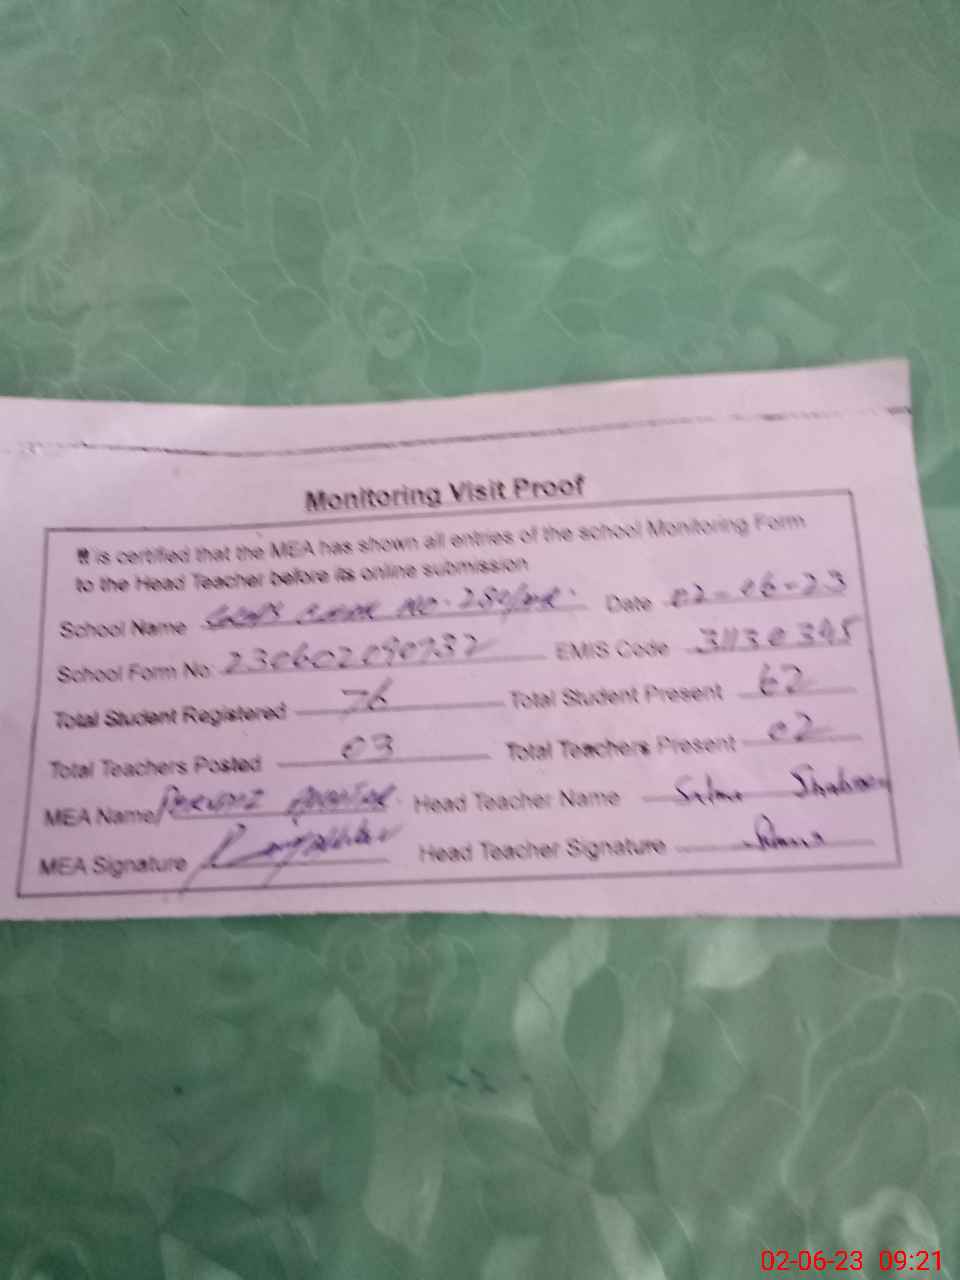 Monitoring Visit Proof
It is certified that the MEA has shown all entries of the school Monitoring Form
to the Head Teacher before its online submission
School Name No. 280/ Date 02-06-23
School Form No. EMIS Code 31130345
Total Student Registered 76 Total Student Present 62
Total Teachers Posted 03 Total Teachers Present 02
MEA Name Head Teacher Name Salma
MEA Signature Head Teacher Signature
02-06-23 09:21